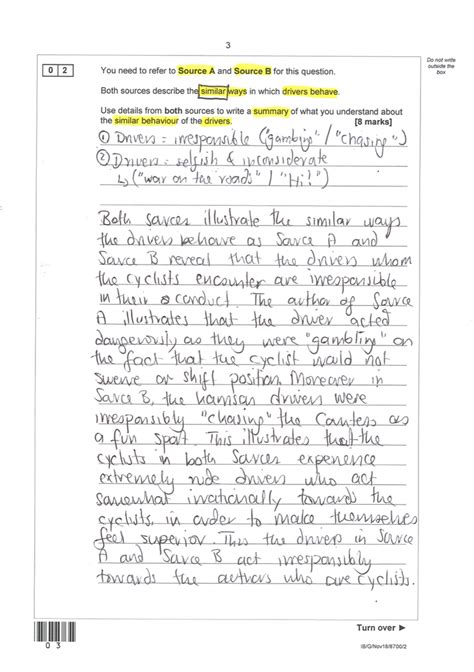 3
Do not write
outside the
box
0 2
You need to refer to Source A and Source B for this question.
Both sources describe the similar ways in which drivers behave.
Use details from both sources to write a summary of what you understand about
the similar behaviour of the drivers.
[8 marks]
① Drivers = irresponsible ("gambling" / "chasing")
② Drivers = selfish & inconsiderate
↳ ("war on the roads" / "Hi!")
Both sources illustrate the similar ways
the drivers behave as Source A and
Source B reveal that the drivers whom
the cyclists encounter are irresponsible
in their conduct. The author of Source
A illustrates that the driver acted
dangerously as they were "gambling" on
the fact that the cyclist would not
swerve or shift position. Moreover in
Source B, the hansom drivers were
irresponsibly "chasing" the Countess as
a fun sport. This illustrates that the
cyclists in both Sources experience
extremely rude drivers who act
somewhat irrationally towards the
cyclists, in order to make themselves
feel superior. Thus the drivers in Source
A and Source B act irresponsibly
towards the authors who are cyclists.
Turn over ►
0 3
IB/G/Nov18/8700/2